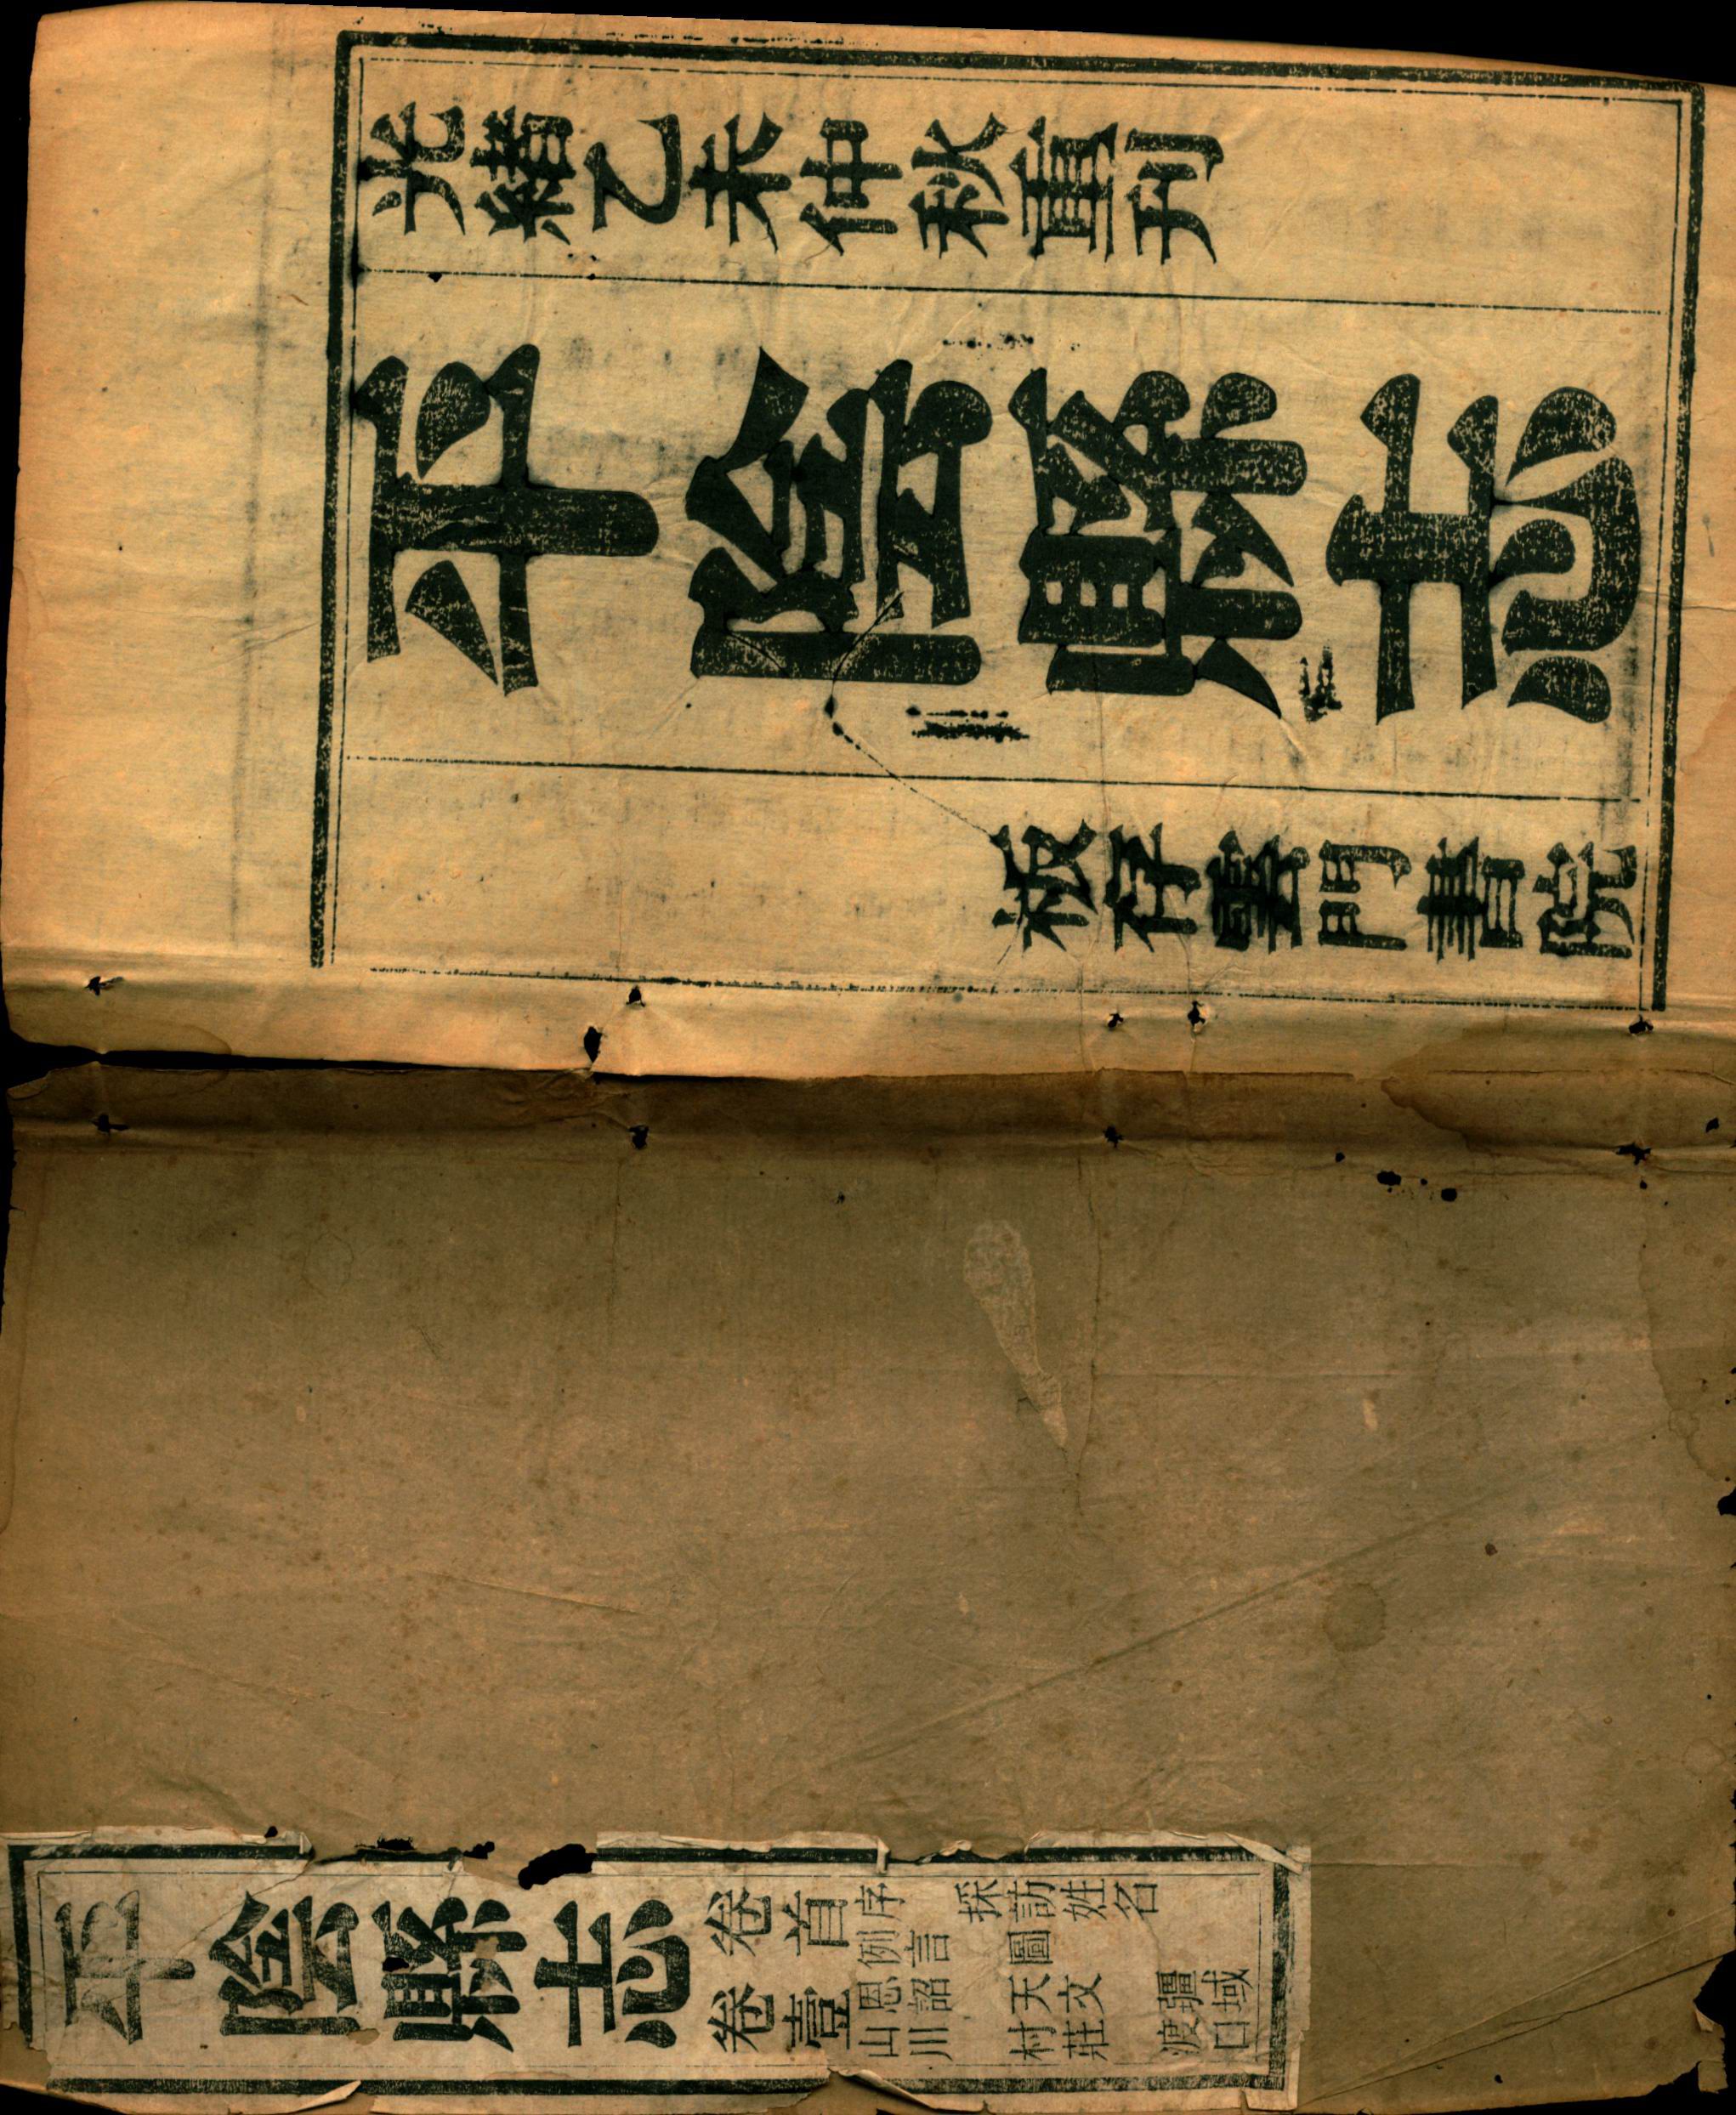 光緒乙未仲秋重刊
平陰縣志
板存雲門書院
平陰縣志
卷首
序　採訪姓名
例言　圖
卷壹
恩詔　天文　疆域
山川　村莊　渡口